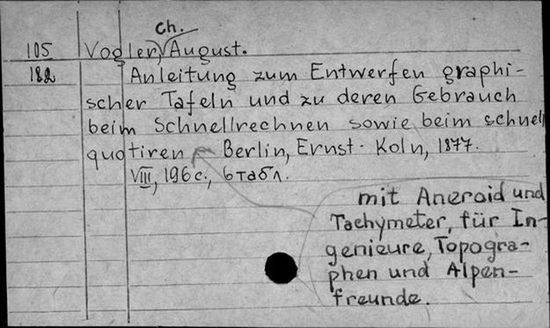 Ch.
105 Vogler, August.
182 Anleitung zum Entwerfen graphi-
scher Tafeln und zu deren Gebrauch
beim Schnellrechnen sowie beim schnell
quotiren – Berlin, Ernst - Koln, 1877.
VIII, 196 с., 6 табл.
mit Aneroid und
Tachymeter, für In-
genieure, Topogra-
phen und Alpen-
freunde.